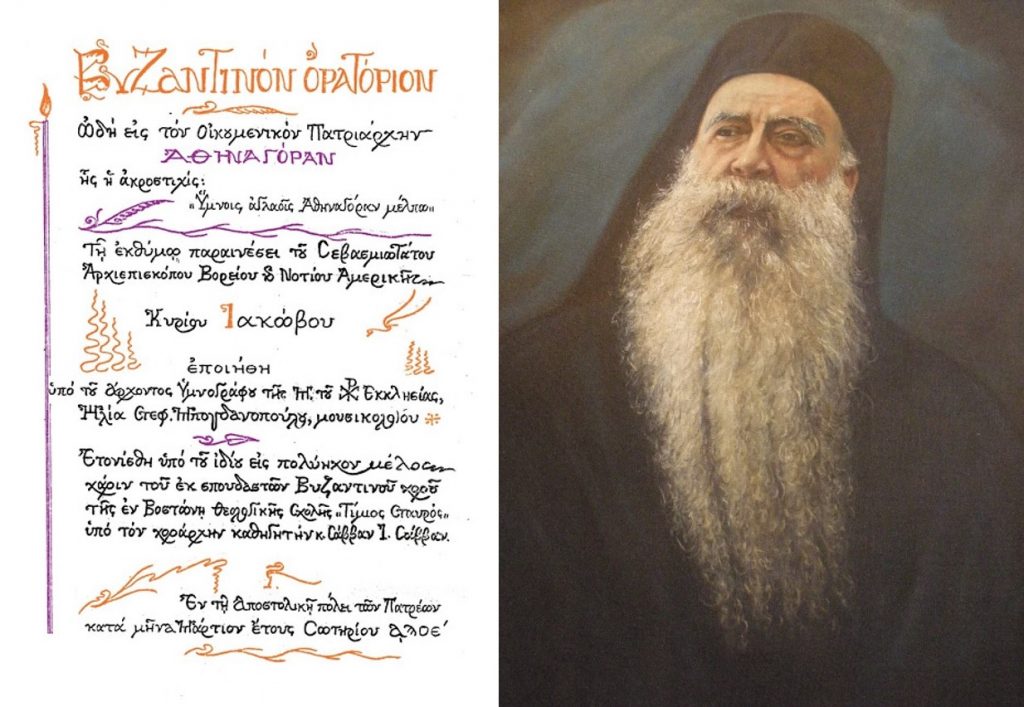 Βυζαντινόν ὁρατόριον
ᾨδή εἰς τόν Οἰκουμενικόν Πατριάρχην
ἈΘΗΝΑΓΌΡΑΝ
ἧς ἡ ἀκροστιχίς:
"Ὕμνοις ἀγλαοῖς Ἀθηναγόραν μέλπω"
Τῇ ἐκθύμῳ παραινέσει τοῦ Σεβασμιωτάτου
Ἀρχιεπισκόπου Βορείου & Νοτίου Ἀμερικῆς
Κυρίου Ἰακώβου
ἐποιήθη
ὑπό τοῦ ἄρχοντος Ὑμνογράφου τῆς Μ. τοῦ Χρ Ἐκκλησίας,
Ἠλία Στεφ. Μπογδανοπούλου, μουσικολόγου
Ἐτονίσθη ὑπό τοῦ ἰδίου εἰς πολύηχον μέλος
χάριν τοῦ ἐκ σπουδαστῶν Βυζαντινοῦ χοροῦ
τῆς ἐν Βοστώνῃ Θεολογικῆς Σχολῆς "Τίμιος Σταυρός"
ὑπό τόν χοράρχην καθηγητήν κ. Σάββαν Ι. Σάββαν.
Ἐν τῇ Ἀποστολικῇ πόλει τῶν Πατρέων
κατά μῆνα Μάρτιον ἔτους Σωτηρίου